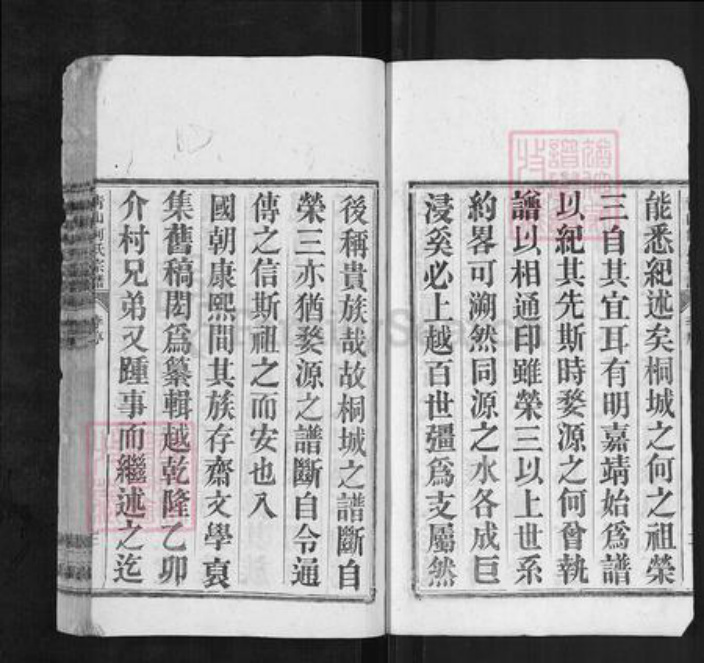 能悉紀述矣桐城之何之祖榮
三自其宜耳有明嘉靖始爲譜
以紀其先斯時婺源之何曾執
譜以相通印雖榮三以上世系
約畧可溯然同源之水各成巨
浸奚必上越百世彊爲支屬然
後稱貴族哉故桐城之譜斷自
榮三亦猶婺源之譜斷自令通
傳之信斯祖之而安也入
國朝康熙間其族存齋文學裒
集舊稿閎爲纂輯越乾隆乙卯
介村兄弟又踵事而繼述之迄